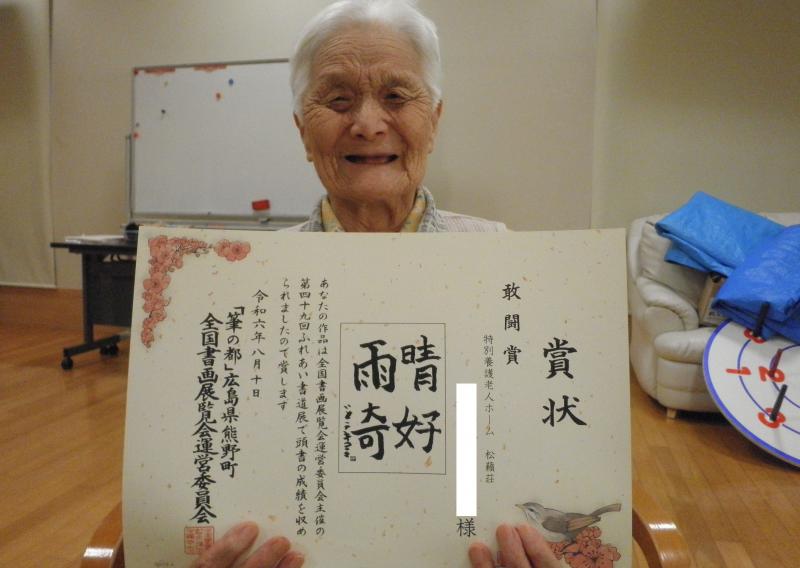 賞状
敢闘賞
特別養護老人ホーム 松籟荘
様
晴好
雨奇
あなたの作品は全国書画展覧会運営委員会主催の
第四十九回ふれあい書道展で頭書の成績を収め
られましたので賞します
令和六年八月十日
「筆の都」広島県熊野町
全国書画展覧会運営委員会
1
2
3